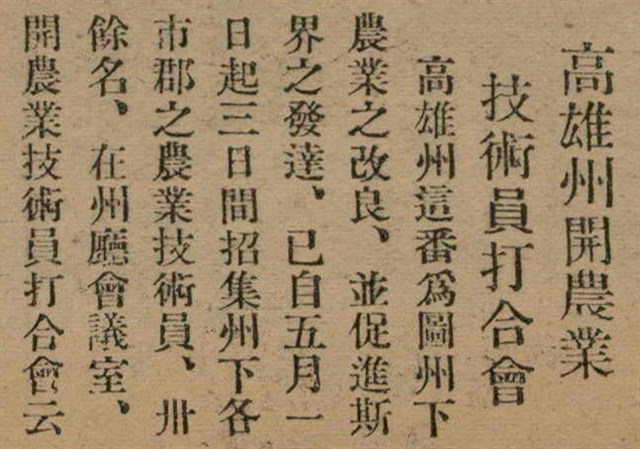 高雄州開農業
技術員打合會
高雄州這番爲圖州下
農業之改良、並促進斯
界之發達、已自五月一
日起三日間招集州下各
市郡之農業技術員、卅
餘名、在州廳會議室、
開農業技術員打合會云